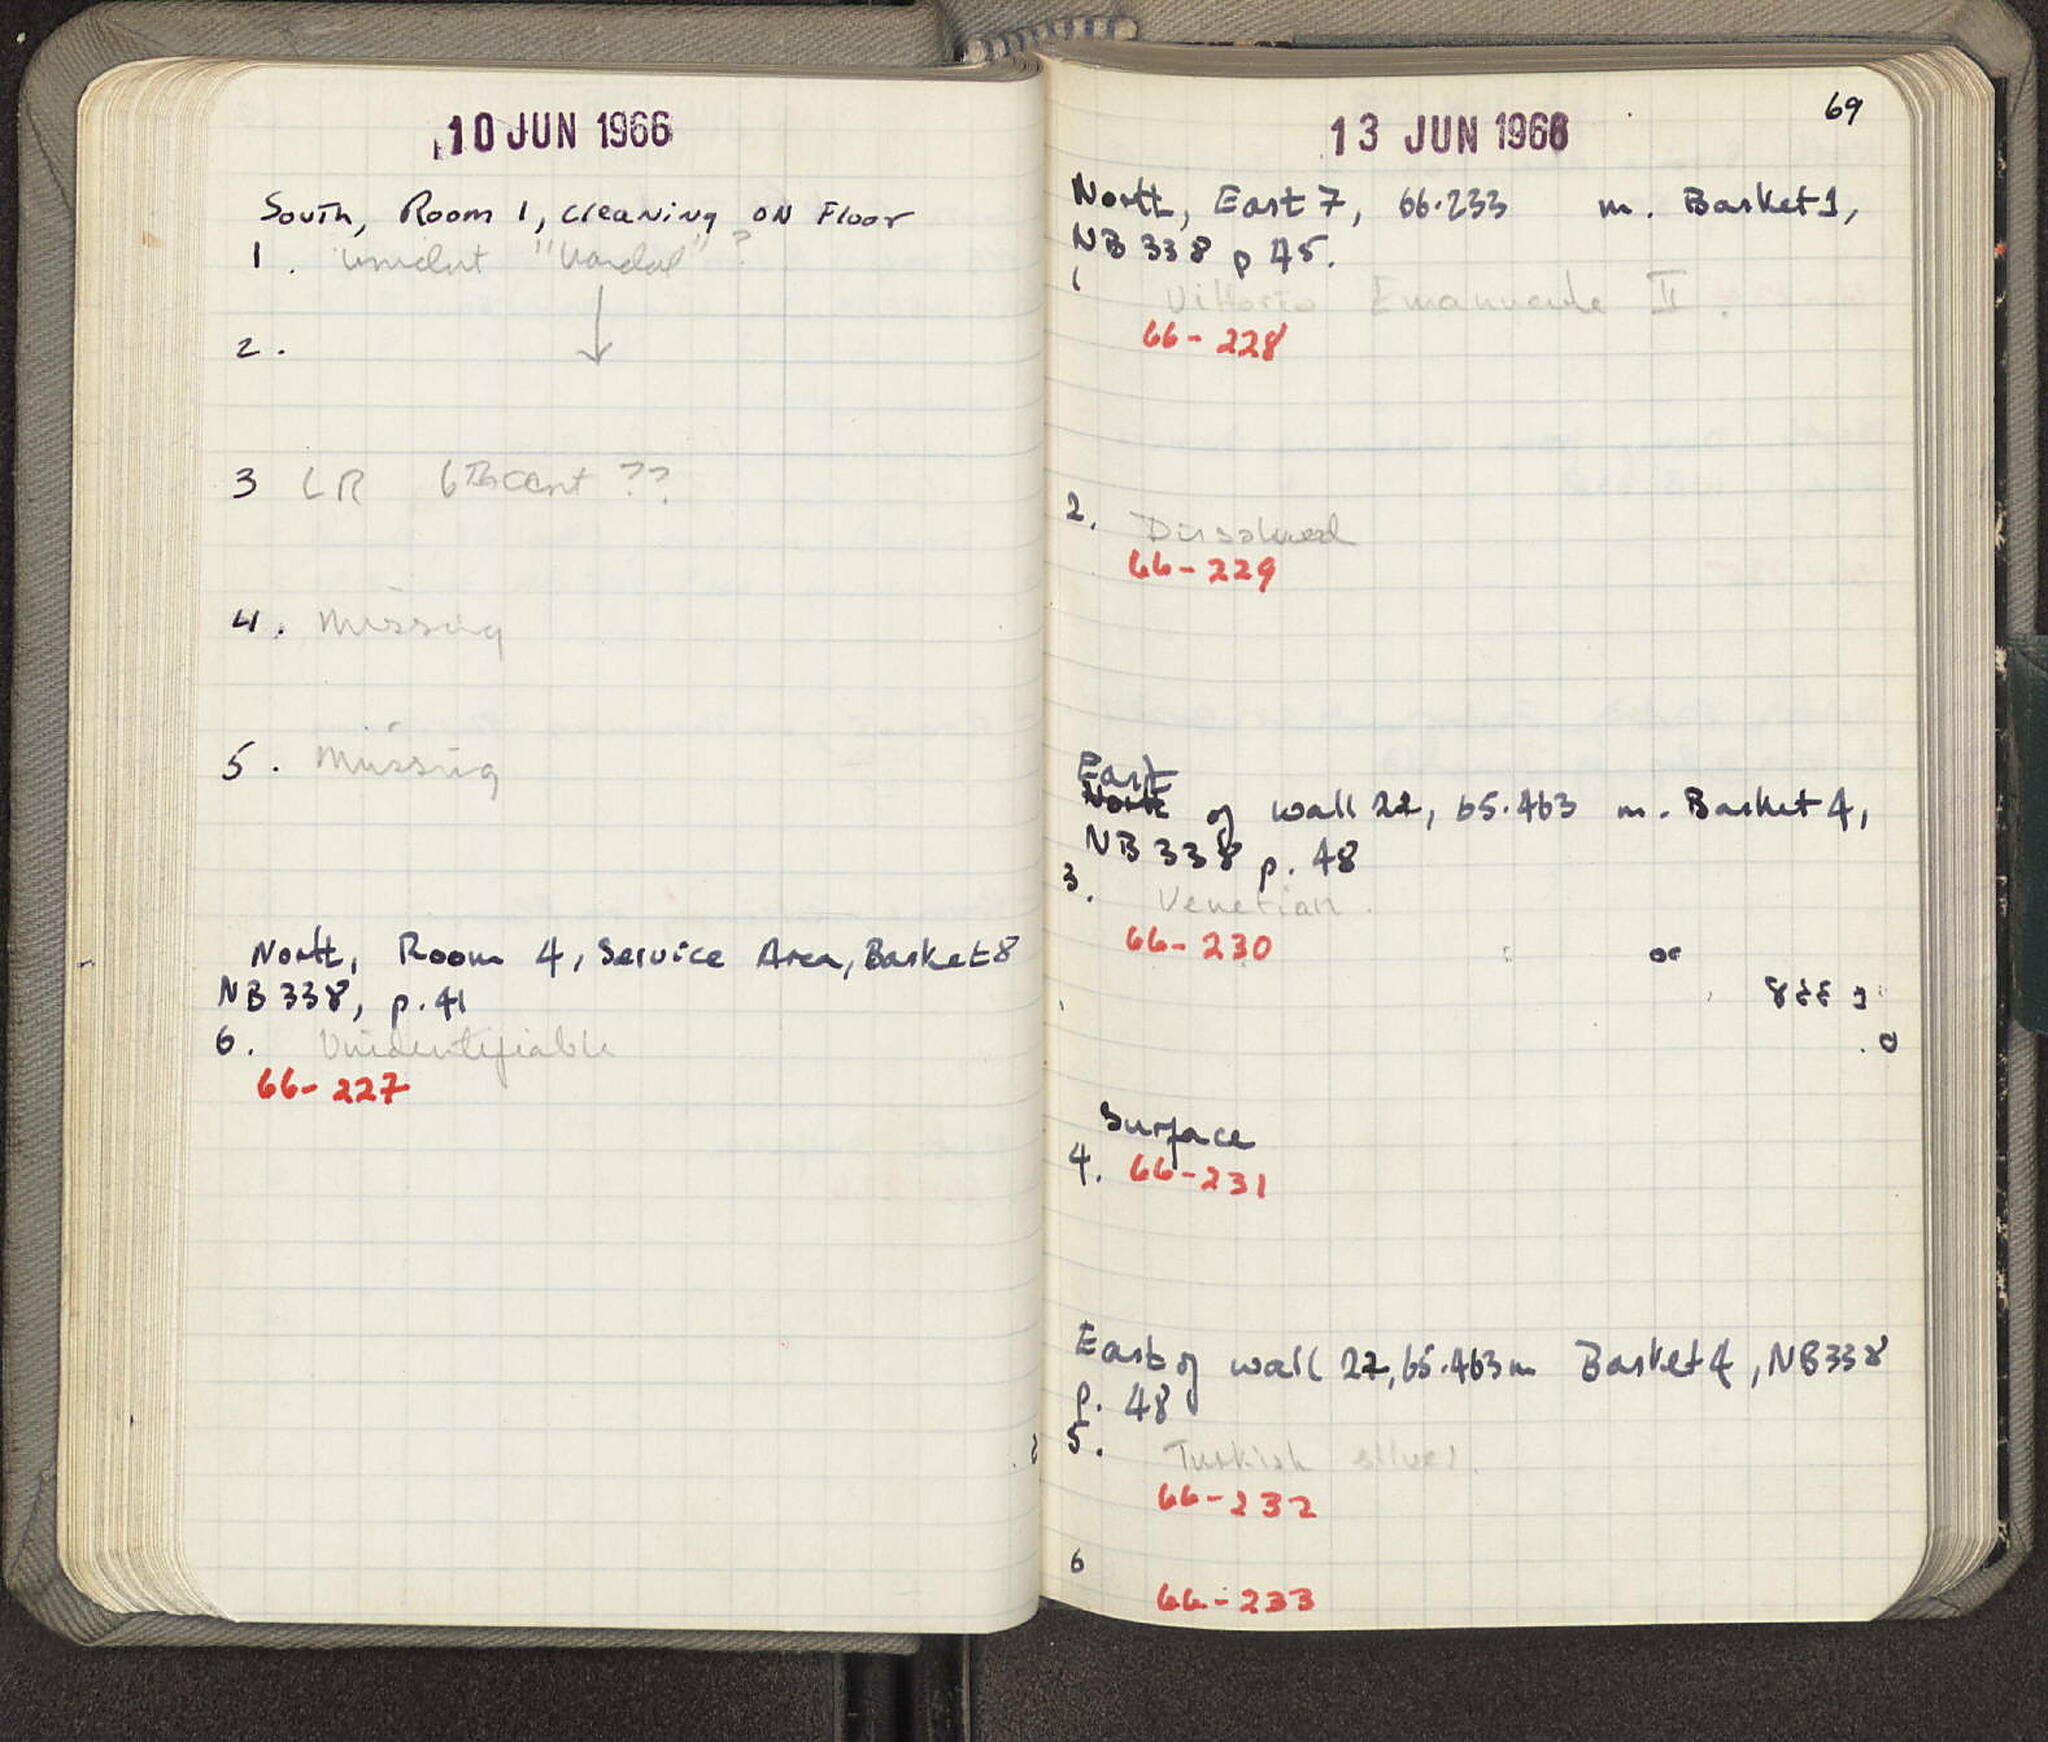 10 JUN 1966
South, Room 1, cleaning on Floor
1. unident "Vandal"?
2.
3 LR 6th cent ??
4. Missing
5. Missing
North, Room 4, Service Area, Basket 8
NB 338, p. 41
6. Unidentifiable
66-227
69
13 JUN 1966
North, East 7, 66.233 m. Basket 1,
NB 338 p 45.
1 Vittorio Emanuele II
66-228
2. Dissolved
66-229
East
North of wall 22, 65.463 m. Basket 4,
NB 338 p. 48
3. Venetian
66-230
Surface
4. 66-231
East of wall 22, 65.463 m Basket 4, NB 338
p. 48
5. Turkish silver.
66-232
6
66-233